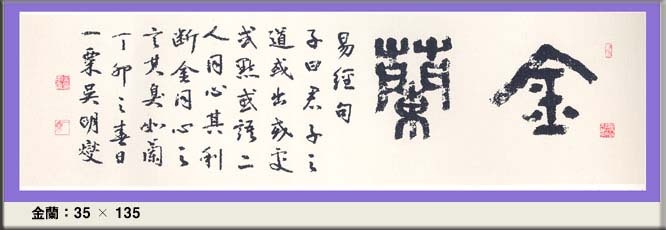 金蘭
易經句
子曰君子之
道或出或處
或默或語二
人同心其利
断金同心之
言其臭如蘭
丁卯之春日
一粟吳明燮
金蘭：35 × 135